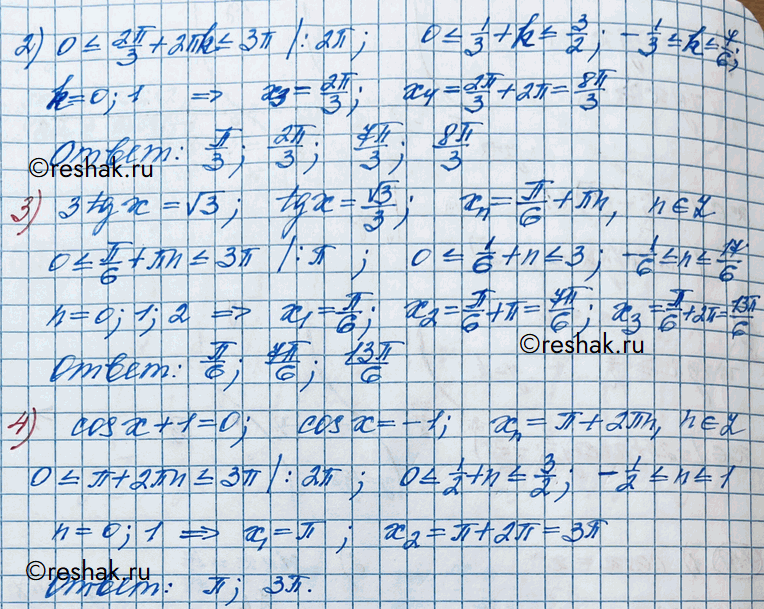 2) 0 ≤ 2π/3 + 2πk ≤ 3π |: 2π; 0 ≤ 1/3 + k ≤ 3/2; -1/3 ≤ k ≤ 7/6;
k = 0; 1 ⇒ x₃ = 2π/3; x₄ = 2π/3 + 2π = 8π/3
Ответ: π/3; 2π/3; 7π/3; 8π/3
©reshak.ru
3) 3 tg x = √3; tg x = √3/3; xₙ = π/6 + πn, n ∈ Z
0 ≤ π/6 + πn ≤ 3π |: π; 0 ≤ 1/6 + n ≤ 3; -1/6 ≤ n ≤ 17/6
n = 0; 1; 2 ⇒ x₁ = π/6; x₂ = π/6 + π = 7π/6; x₃ = π/6 + 2π = 13π/6
©reshak.ru
Ответ: π/6; 7π/6; 13π/6
4) cos x + 1 = 0; cos x = -1; xₙ = π + 2πn, n ∈ Z
0 ≤ π + 2πn ≤ 3π |: 2π; 0 ≤ 1/2 + n ≤ 3/2; -1/2 ≤ n ≤ 1
n = 0; 1 ⇒ x₁ = π; x₂ = π + 2π = 3π
©reshak.ru
Ответ: π; 3π.